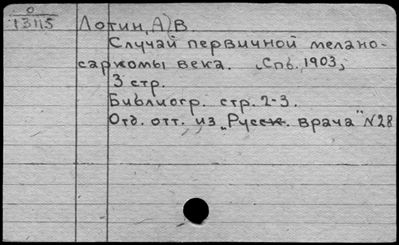 0
13115
Лотин, А) В.
Случай первичной мелано-
саркомы века. Спб. 1903,
3 стр.
Библиогр. стр. 2-3.
Отд. отт. из „Русск. врача" №28